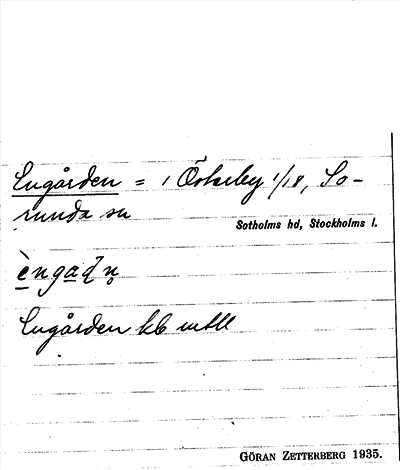 Engården = 1 Österby 1/18, So-
runda sn
Sotholms hd, Stockholms l.
èngaḍṇ
Engården kb mtll
GÖRAN ZETTERBERG 1935.